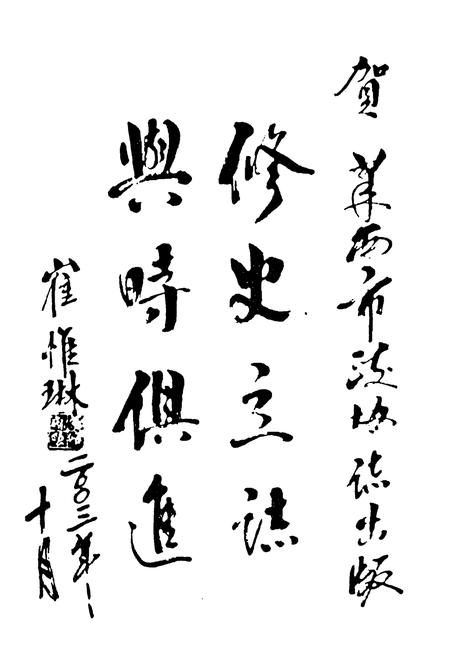 賀 萊西市政協誌出版
修史立誌
與時俱進
崔惟琳
二〇〇三年
十月